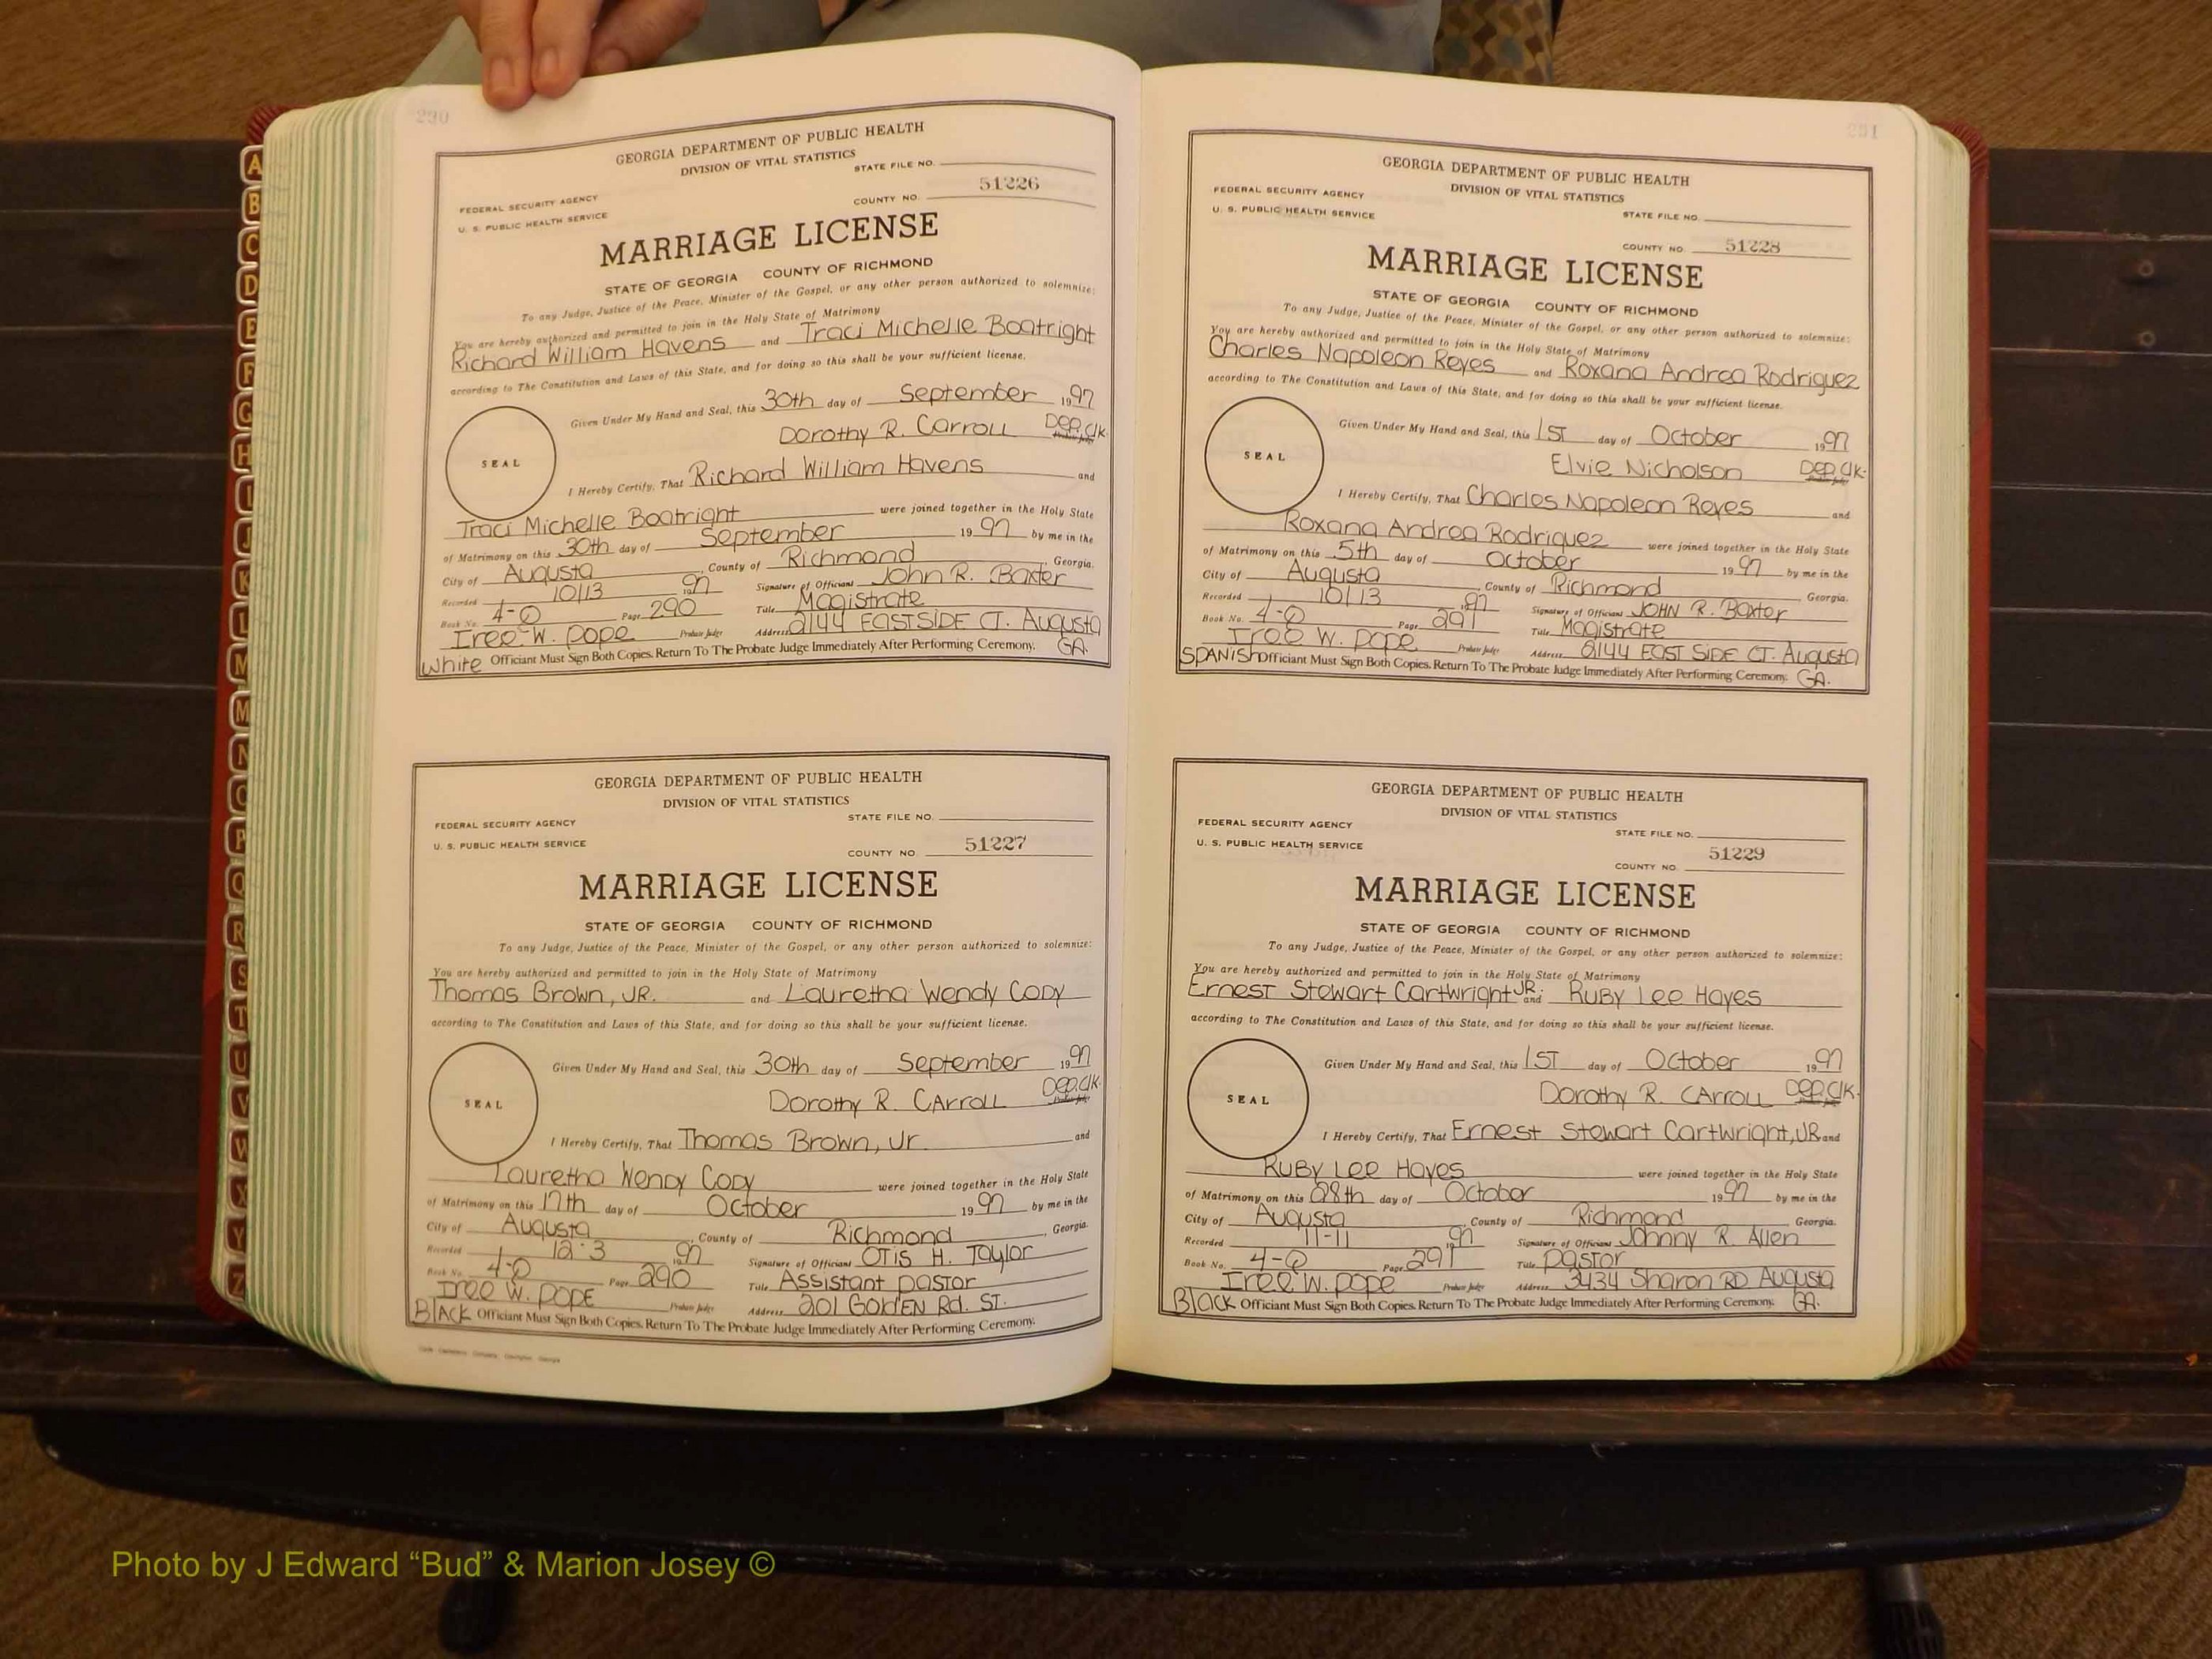 290
GEORGIA DEPARTMENT OF PUBLIC HEALTH
DIVISION OF VITAL STATISTICS
STATE FILE NO.
FEDERAL SECURITY AGENCY
U. S. PUBLIC HEALTH SERVICE
COUNTY NO. 51226
MARRIAGE LICENSE
STATE OF GEORGIA COUNTY OF RICHMOND
To any Judge, Justice of the Peace, Minister of the Gospel, or any other person authorized to solemnize:
You are hereby authorized and permitted to join in the Holy State of Matrimony
Richard William Havens and Traci Michelle Boatright
according to The Constitution and Laws of this State, and for doing so this shall be your sufficient license.
Given Under My Hand and Seal, this 30th day of September 1997
Dorothy R. Carroll Dep. Clk.
SEAL
I Hereby Certify, That Richard William Havens and
Traci Michelle Boatright were joined together in the Holy State
of Matrimony on this 30th day of September 1997 by me in the
City of Augusta, County of Richmond, Georgia.
Recorded 10/13 1997 Signature of Officiant John R. Baxter
Book No. 4-Q Page 290 Title Magistrate
Iree W. Pope Probate Judge Address 2144 EASTSIDE CT. Augusta
White Officiant Must Sign Both Copies. Return To The Probate Judge Immediately After Performing Ceremony. GA.
GEORGIA DEPARTMENT OF PUBLIC HEALTH
DIVISION OF VITAL STATISTICS
STATE FILE NO.
FEDERAL SECURITY AGENCY
U. S. PUBLIC HEALTH SERVICE
COUNTY NO. 51227
MARRIAGE LICENSE
STATE OF GEORGIA COUNTY OF RICHMOND
To any Judge, Justice of the Peace, Minister of the Gospel, or any other person authorized to solemnize:
You are hereby authorized and permitted to join in the Holy State of Matrimony
Thomas Brown, JR. and Lauretha Wendy Cody
according to The Constitution and Laws of this State, and for doing so this shall be your sufficient license.
Given Under My Hand and Seal, this 30th day of September 1997
Dorothy R. CArroll Dep. Clk.
SEAL
I Hereby Certify, That Thomas Brown, Jr. and
Lauretha Wendy Cody were joined together in the Holy State
of Matrimony on this 17th day of October 1997 by me in the
City of Augusta, County of Richmond, Georgia.
Recorded 12-3 1997 Signature of Officiant OTIS H. Taylor
Book No. 4-Q Page 290 Title Assistant pastor
Iree W. POPE Probate Judge Address 201 GOldEN Rd. ST.
BlACK Officiant Must Sign Both Copies. Return To The Probate Judge Immediately After Performing Ceremony.
291
GEORGIA DEPARTMENT OF PUBLIC HEALTH
DIVISION OF VITAL STATISTICS
FEDERAL SECURITY AGENCY
U. S. PUBLIC HEALTH SERVICE
STATE FILE NO.
COUNTY NO. 51228
MARRIAGE LICENSE
STATE OF GEORGIA COUNTY OF RICHMOND
To any Judge, Justice of the Peace, Minister of the Gospel, or any other person authorized to solemnize:
You are hereby authorized and permitted to join in the Holy State of Matrimony
Charles Napoleon Reyes and Roxana Andrea Rodriguez
according to The Constitution and Laws of this State, and for doing so this shall be your sufficient license.
Given Under My Hand and Seal, this 1ST day of October 1997
Elvie Nicholson Dep. Clk.
SEAL
I Hereby Certify, That Charles Napoleon Reyes and
Roxana Andrea Rodriguez were joined together in the Holy State
of Matrimony on this 5th day of October 1997 by me in the
City of Augusta, County of Richmond Georgia.
Recorded 10/13 1997 Signature of Officiant JOHN R. Baxter
Book No. 4-Q Page 291 Title Magistrate
Iree W. Pope Probate Judge Address 2144 EAST SIDE CT. Augusta
SPANISH Officiant Must Sign Both Copies. Return To The Probate Judge Immediately After Performing Ceremony. GA.
GEORGIA DEPARTMENT OF PUBLIC HEALTH
DIVISION OF VITAL STATISTICS
FEDERAL SECURITY AGENCY
U. S. PUBLIC HEALTH SERVICE
STATE FILE NO.
COUNTY NO. 51229
MARRIAGE LICENSE
STATE OF GEORGIA COUNTY OF RICHMOND
To any Judge, Justice of the Peace, Minister of the Gospel, or any other person authorized to solemnize:
You are hereby authorized and permitted to join in the Holy State of Matrimony
Ernest Stewart Cartwright JR. and Ruby Lee Hayes
according to The Constitution and Laws of this State, and for doing so this shall be your sufficient license.
Given Under My Hand and Seal, this 1ST day of October 1997
Dorothy R. CArroll Dep. Clk.
SEAL
I Hereby Certify, That Ernest Stewart Cartwright, JR and
Ruby Lee Hayes were joined together in the Holy State
of Matrimony on this 28th day of October 1997 by me in the
City of Augusta, County of Richmond Georgia.
Recorded 11-11 1997 Signature of Officiant Johnny R. Allen
Book No. 4-Q Page 291 Title pastor
Iree W. pope Probate Judge Address 3434 Sharon RD Augusta
Black Officiant Must Sign Both Copies. Return To The Probate Judge Immediately After Performing Ceremony. GA.
A
B
C
D
E
F
G
H
I
J
K
L
M
M
N
O
P
Q
R
S
T
U
V
W
X
Y
Z
Photo by J Edward “Bud” & Marion Josey ©